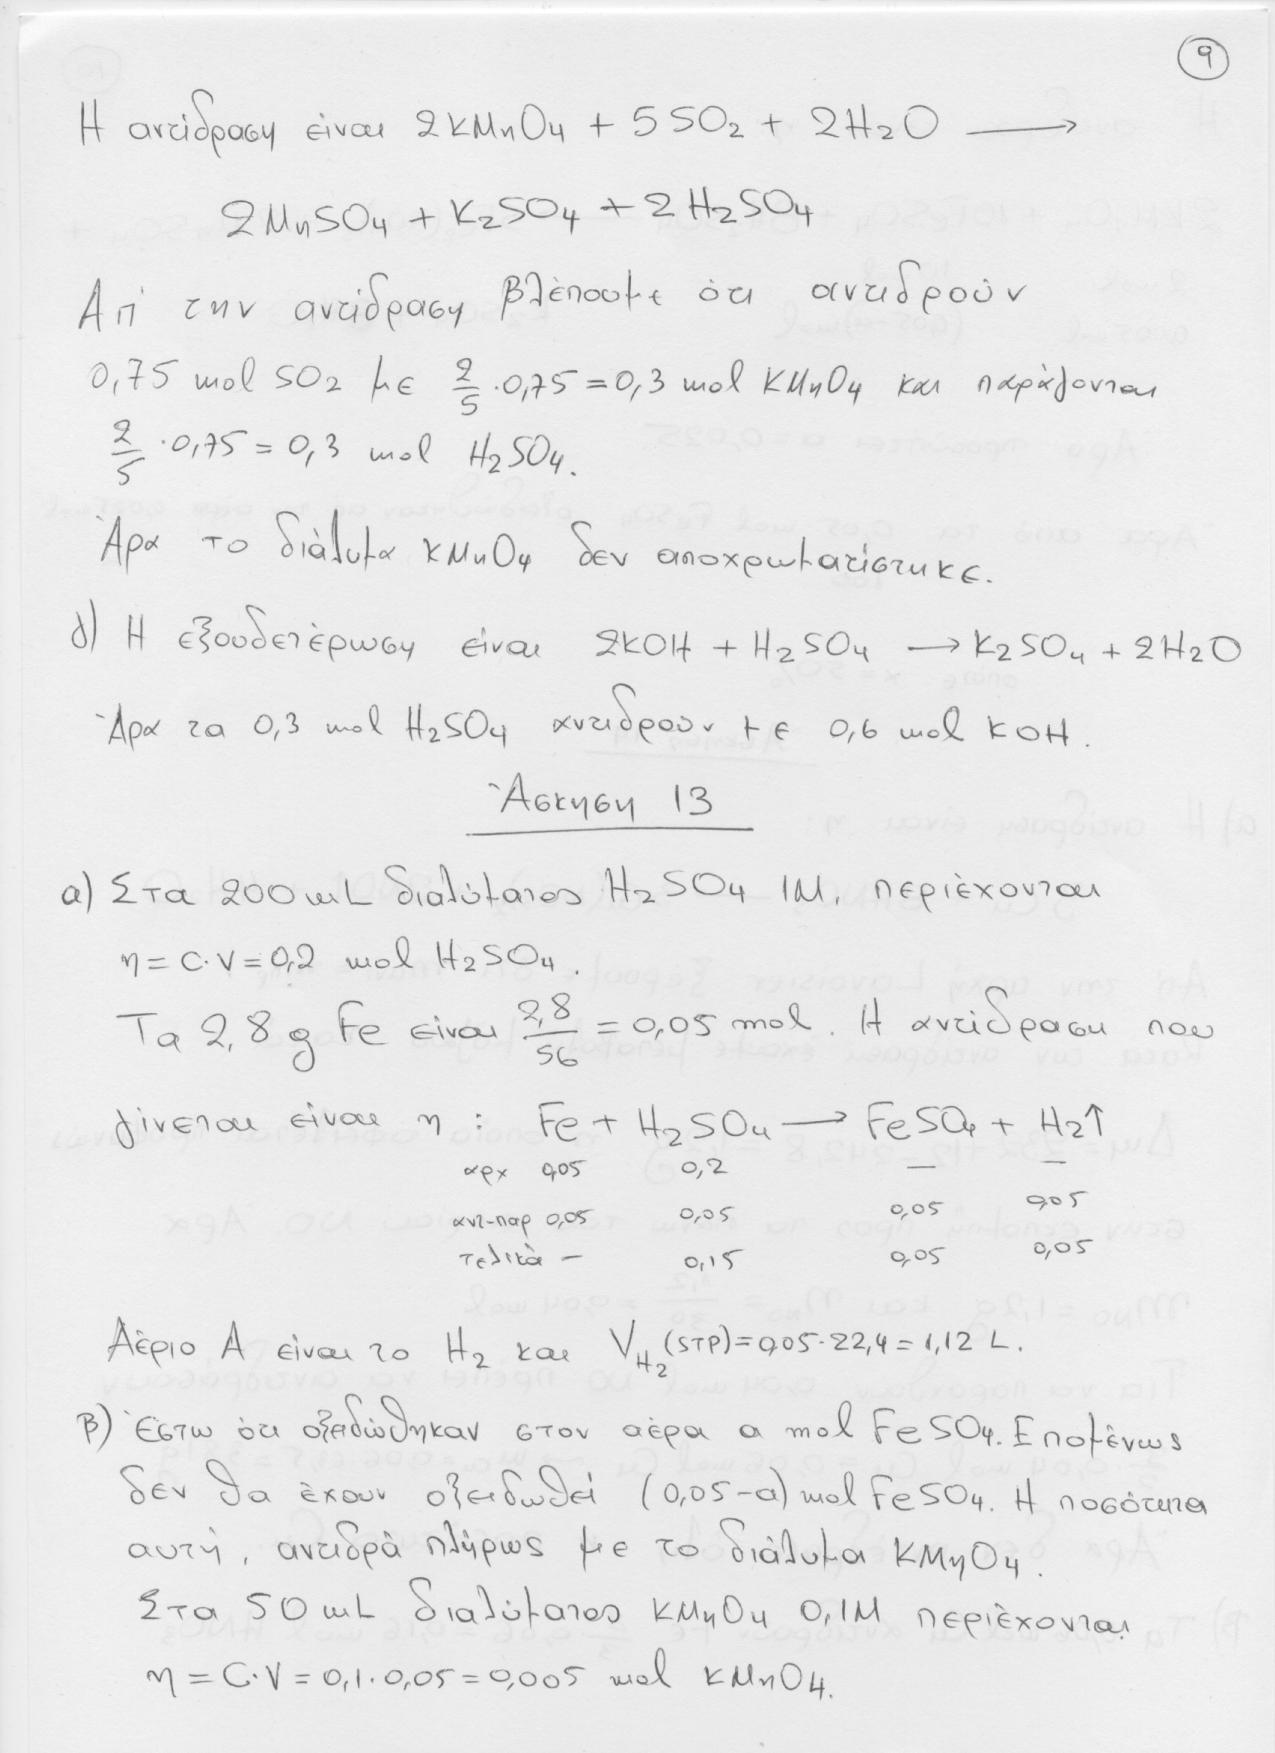 9
Η αντίδραση είναι 2KMnO4 + 5SO2 + 2H2O ⟶
2MnSO4 + K2SO4 + 2H2SO4
Απ' την αντίδραση βλέπουμε ότι αντιδρούν
0,75 mol SO2 με 2/5 · 0,75 = 0,3 mol KMnO4 και παράγονται
2/5 · 0,75 = 0,3 mol H2SO4.
Άρα το διάλυμα KMnO4 δεν αποχρωματίστηκε.
δ) Η εξουδετέρωση είναι 2KOH + H2SO4 ⟶ K2SO4 + 2H2O
Άρα τα 0,3 mol H2SO4 αντιδρούν με 0,6 mol KOH.
Άσκηση 13
α) Στα 200mL διαλύματος H2SO4 1M, περιέχονται
η = C·V = 0,2 mol H2SO4.
Τα 2,8g Fe είναι 2,8/56 = 0,05 mol. Η αντίδραση που
γίνεται είναι η : Fe + H2SO4 ⟶ FeSO4 + H2↑
αρχ 0,05 0,2 — —
αντ-παρ 0,05 0,05 0,05 0,05
τελικά — 0,15 0,05 0,05
Αέριο Α είναι το H2 και VH2(STP) = 0,05·22,4 = 1,12 L.
β) Έστω ότι οξειδώθηκαν στον αέρα α mol FeSO4. Επομένως
δεν θα έχουν οξειδωθεί (0,05-α) mol FeSO4. Η ποσότητα
αυτή, αντιδρά πλήρως με το διάλυμα KMnO4.
Στα 50mL διαλύματος KMnO4 0,1M περιέχονται
η = C·V = 0,1·0,05 = 0,005 mol KMnO4.